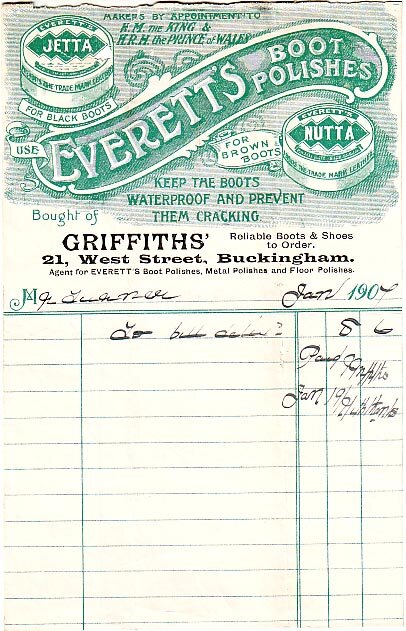 MAKERS BY APPOINTMENT TO
H.M. THE KING &
H.R.H. THE PRINCE OF WALES
EVERETT'S
JETTA
THE TRADE MARK
FOR BLACK BOOTS
USE
EVERETT'S BOOT POLISHES
FOR BROWN BOOTS
EVERETT'S
NUTTA
THE TRADE MARK
KEEP THE BOOTS
WATERPROOF AND PREVENT
THEM CRACKING
Bought of
GRIFFITHS' Reliable Boots & Shoes to Order.
21, West Street, Buckingham.
Agent for EVERETT'S Boot Polishes, Metal Polishes and Floor Polishes.
M Turner Jan 1907
To bill 8 6
Paid
Jan 19 thanks